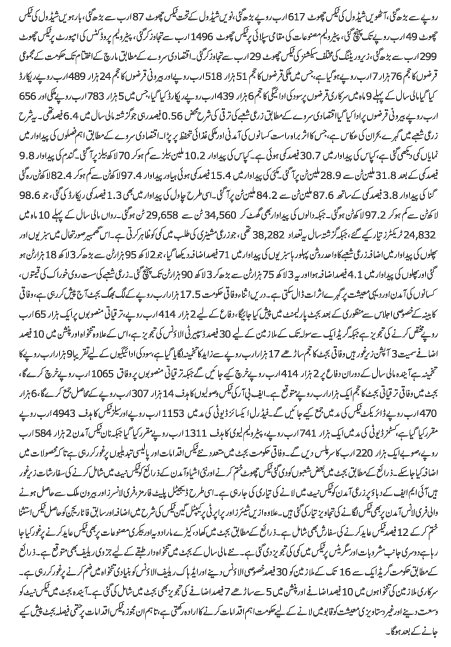 روپے سے بڑھ گئی، آٹھویں شیڈول کی ٹیکس چھوٹ 617 ارب روپے بڑھ گئی، نویں شیڈول کے تحت ٹیکس چھوٹ 87 ارب سے بڑھ گئی، بارہویں شیڈول کی ٹیکس
چھوٹ 49 ارب روپے تک پہنچ گئی، پیٹرولیم مصنوعات کی مقامی سپلائی پر ٹیکس چھوٹ 1496 ارب سے تجاوز کر گئی، پیٹرولیم پروڈکٹس کی امپورٹ پر ٹیکس چھوٹ
299 ارب سے بڑھ گئی، زیرو ریٹنگ کی مختلف سیکشنز کی ٹیکس چھوٹ 29 ارب سے تجاوز کر گئی۔ اقتصادی سروے کے مطابق مارچ کے اختتام تک حکومت کے مجموعی
قرضوں کا حجم 76 ہزار 7 ارب روپے ہو گیا ہے، جس میں ملکی قرضوں کا حجم 51 ہزار 518 ارب روپے اور بیرونی قرضوں کا حجم 24 ہزار 489 ارب روپے ریکارڈ
کیا گیا مالی سال کے پہلے 9 ماہ میں سرکاری قرضوں پر سود کی ادائیگی کا حجم 6 ہزار 439 ارب روپے ریکارڈ کیا گیا، جس میں 5 ہزار 783 ارب روپے ملکی اور 656
ارب روپے بیرونی قرضوں پر ادا کیا گیا اقتصادی سروے کے مطابق زرعی شعبے کی ترقی کی شرح محض 0.56 فیصد رہی جو گزشتہ مالی سال میں 6.4 فیصد تھی۔ یہ شرح
زرعی شعبے میں گہرے بحران کی عکاس ہے، جس کا اثر براہ راست کسانوں کی آمدنی اور ملکی غذائی تحفظ پر پڑا۔ اقتصادی سروے کے مطابق اہم فصلوں کی پیداوار میں
نمایاں کمی دیکھی گئی ہے، کپاس کی پیداوار میں 30.7 فیصد کمی ہوئی ہے۔ کپاس کی پیداوار 10.2 ملین بیلز سے کم ہو کر 70 لاکھ بیلز پر آگئی۔ گندم کی پیداوار 9.8
فیصد کے بعد 31.8 ملین ٹن سے 28.9 ملین ٹن پر آگئی۔ مکئی کی پیداوار میں 15.4 فیصد کمی ہوئی پیداوار 97.4 لاکھ ٹن سے کم ہو کر 82.4 لاکھ ٹن ہو گئی۔
گنا کی پیداوار 3.8 فیصد کمی کے ساتھ 87.6 ملین ٹن سے 84.2 ملین ٹن پر آگئی۔ اسی طرح چاول کی پیداوار میں بھی 1.3 فیصد کمی ریکارڈ کی گئی، جو 98.6
لاکھ ٹن سے کم ہو کر 97.2 لاکھ ٹن ہو گئی۔ جبکہ دالوں کی پیداوار بھی گھٹ کر 34,560 ٹن سے 29,658 ٹن ہو گئی۔ رواں مالی سال کے پہلے 10 ماہ میں
24,832 ٹریکٹرز تیار کیے گئے، جبکہ گزشتہ سال یہ تعداد 38,282 تھی، جو زرعی مشینری کی طلب میں کمی کو ظاہر کرتی ہے۔ اس گھمبیر صورتحال میں سبزیوں اور
پھلوں کی پیداوار میں اضافہ زرعی شعبے کا واحد روشن پہلو رہا سبزیوں کی پیداوار میں 7.1 فیصد اضافہ دیکھا گیا، جو 2 لاکھ 95 ہزار ٹن سے بڑھ کر 3 لاکھ 18 ہزار ٹن ہو
گئی اور پھلوں کی پیداوار میں 4.1 فیصد اضافہ ہوا اور یہ 3 لاکھ 75 ہزار ٹن سے بڑھ کر 3 لاکھ 90 ہزار ٹن تک پہنچ گئی۔ زرعی شعبے کی سست روی خوراک کی قیمتوں،
کسانوں کی آمدن اور دیہی معیشت پر گہرے اثرات ڈال سکتی ہے۔ دریں اثنا وفاقی حکومت 17.5 ہزار ارب روپے کے لگ بھگ بجٹ آج پیش کر رہی ہے، وفاقی
کابینہ کے خصوصی اجلاس سے منظوری کے بعد بجٹ پارلیمنٹ میں پیش کیا جائیگا، دفاع کے لیے 2 ہزار 414 ارب روپے، ترقیاتی منصوبوں پر ایک ہزار 65 ارب
روپے مختص کرنے کی تجویز ہے جبکہ گریڈ ایک سے سولہ تک کے ملازمین کے لیے 30 فیصد ڈسپیرٹی الاؤنس کی تجویز ہے، اس کے علاوہ تنخواہ اور پنشن میں 10 فیصد
اضافے سمیت 3 آپشن زیر غور ہیں وفاقی بجٹ کا حجم ساڑھے 17 ہزار ارب روپے سے زاید کا تخمینہ لگایا گیا ہے، سود کی ادائیگیوں کے لیے تقریباً 9 ہزار ارب روپے کا
تخمینہ ہے آیندہ مالی سال کے دوران دفاع پر 2 ہزار 414 ارب روپے خرچ کیے جائیں گے جبکہ ترقیاتی منصوبوں پر وفاق 1065 ارب روپے خرچ کرے گا،
بجٹ میں وفاقی ترقیاتی بجٹ کا حجم ایک ہزار ارب روپے متوقع ہے۔ ایف بی آر کی ٹیکس وصولیوں کا ہدف 14 ہزار 307 ارب روپے کے محاصل جمع کرے گا، 6 ہزار
470 ارب روپے ڈائریکٹ ٹیکس کی مد میں جمع کیے جائیں گے۔ فیڈرل ایکسائز ڈیوٹی کی مد میں 1153 ارب روپے اور سیلز ٹیکس کا ہدف 4943 ارب روپے
مقرر کیا گیا ہے، کسٹمز ڈیوٹی کی مد میں ایک ہزار 741 ارب روپے، پیٹرولیم لیوی کا ہدف 1311 ارب روپے مقرر کیا گیا ہے جبکہ نان ٹیکس آمدن 2 ہزار 584 ارب
روپے، صوبے ایک ہزار 220 ارب کا سرپلس دیں گے۔ وفاقی حکومت بجٹ میں متعدد نئے ٹیکس اقدامات اور پالیسی تبدیلیوں پر غور کر رہی ہے تاکہ محصولات میں
اضافہ کیا جا سکے۔ ذرائع کے مطابق بجٹ میں بعض شعبوں کو دی گئی ٹیکس چھوٹ ختم کرنے اور نئی اشیاء و آمدن کے ذرائع کو ٹیکس نیٹ میں شامل کرنے کی سفارشات زیر غور
ہیں آئی ایم ایف کے دباؤ پر زرعی آمدن کو ٹیکس نیٹ میں لانے کی تیاری کی جا رہی ہے۔ اسی طرح ڈیجیٹل پلیٹ فارمز، فری لانسرز اور بیرون ملک سے حاصل ہونے
والی فری لانس آمدن پر بھی ٹیکس لگانے کی تجاویز تیار کی گئی ہیں۔ علاوہ ازیں شیئرز اور پراپرٹی پر کیپیٹل گین ٹیکس کی شرح میں اضافہ اور سابق فاٹا ریجن کو حاصل ٹیکس استثنا
ختم کر کے 12 فیصد ٹیکس عاید کرنے کی سفارش بھی شامل ہے۔ ذرائع کے مطابق بجٹ میں کھاد، کیڑے مار ادویہ اور بیکری مصنوعات پر بھی ٹیکس عاید کرنے پر غور کیا جا
رہا ہے دوسری جانب مشروبات اور سگریٹس پر ٹیکس میں کمی کی تجویز دی گئی ہے۔ نئے مالی سال کے بجٹ میں تنخواہ دار طبقے کے لیے جزوی ریلیف بھی متوقع ہے۔ ذرائع
کے مطابق گریڈ ایک سے 16 تک کے ملازمین کو 30 فیصد خصوصی الاؤنس دینے اور ایڈہاک ریلیف الاؤنس کو بنیادی تنخواہ میں ضم کرنے پر غور کر رہی ہے۔
سرکاری ملازمین کی تنخواہوں میں 10 فیصد اضافے اور پنشن میں 5 سے ساڑھے 7 فیصد اضافے کی تجویز بھی بجٹ میں شامل کی گئی ہے۔ آیندہ بجٹ میں ٹیکس نیٹ کو
وسعت دینے اور غیر دستاویزی معیشت کو قابو میں لانے کے لیے حکومت اہم اقدامات کرنے کا ارادہ رکھتی ہے، تاہم ان مجوزہ ٹیکس اقدامات پر حتمی فیصلہ بجٹ پیش کیے
جانے کے بعد ہوگا۔